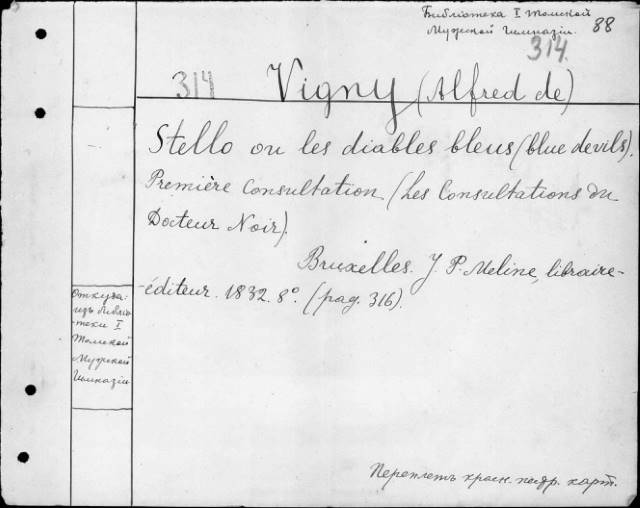 Библіотека I Томской
Мужской Гимназіи. 88
314.
314 Vigny (Alfred de)
Stello ou les diables bleus (blue devils).
Première Consultation (Les Consultations du
Docteur Noir).
Bruxelles. J. P. Meline, libraire-
-éditeur. 1832. 8°. (pag. 316).
Откуда:
изъ библіо-
-теки I
Томской
Мужской
Гимназіи
Переплетъ красн. педр. карт.